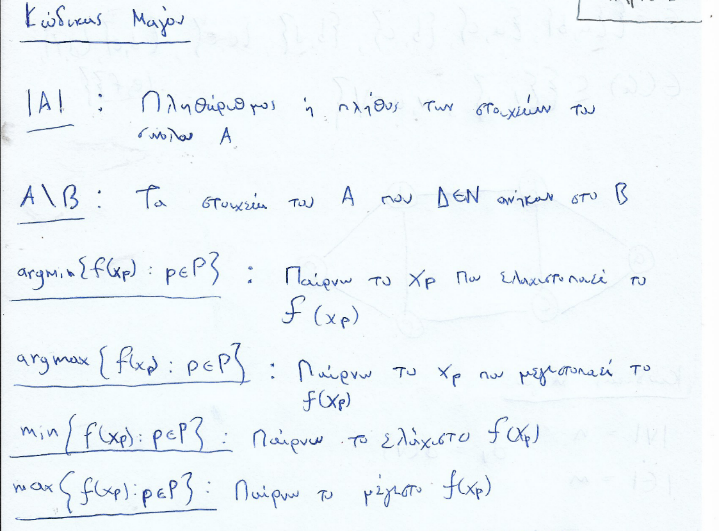 Κώδικας Μαγόν
|A| : Πληθάριθμος ή πλήθος των στοιχείων του
συνόλου A
A\B : Τα στοιχεία του A που ΔΕΝ ανήκουν στο B
argmin{f(xp) : p∈P} : Παίρνω το Xp που ελαχιστοποιεί το
f(xp)
argmax{f(xp) : p∈P} : Παίρνω το Xp που μεγιστοποιεί το
f(xp)
min{f(xp) : p∈P} : Παίρνω το ελάχιστο f(xp)
max{f(xp) : p∈P} : Παίρνω το μέγιστο f(xp)